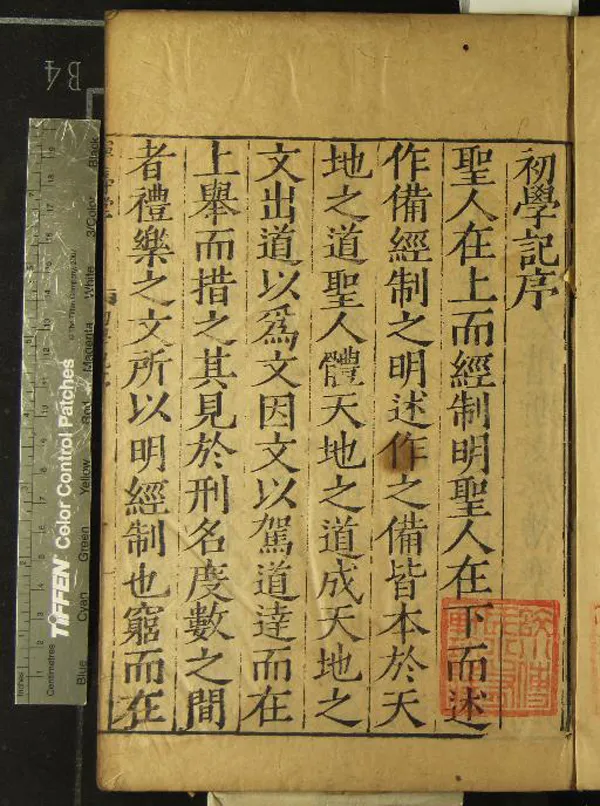 初學記序
聖人在上而經制明聖人在下而述
作備經制之明述作之備皆本於天
地之道聖人體天地之道成天地之
文出道以爲文因文以駕道達而在
上舉而措之其見於刑名度數之間
者禮樂之文所以明經制也窮而在
B4
Inches
Centimetres
TIFFEN Color Control Patches
© The Tiffen Company, 2007
Blue
Cyan
Green
Yellow
Red
Magenta
White
3/Color
Black